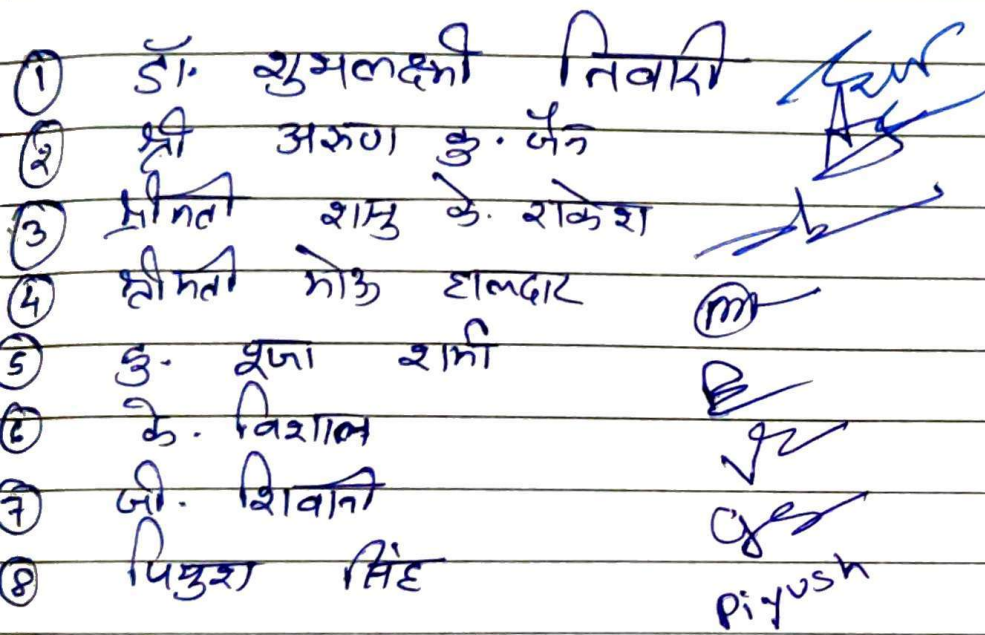 ① डॉ. शुभलक्ष्मी तिवारी
② श्री अरुण कु. जैन
③ श्रीमती शामु के. राकेश
④ श्रीमती मोऊ हालदार
⑤ कु. पूजा शर्मा
⑥ के. विशाल
⑦ जी. शिवानी
⑧ पियुश सिंह Piyush